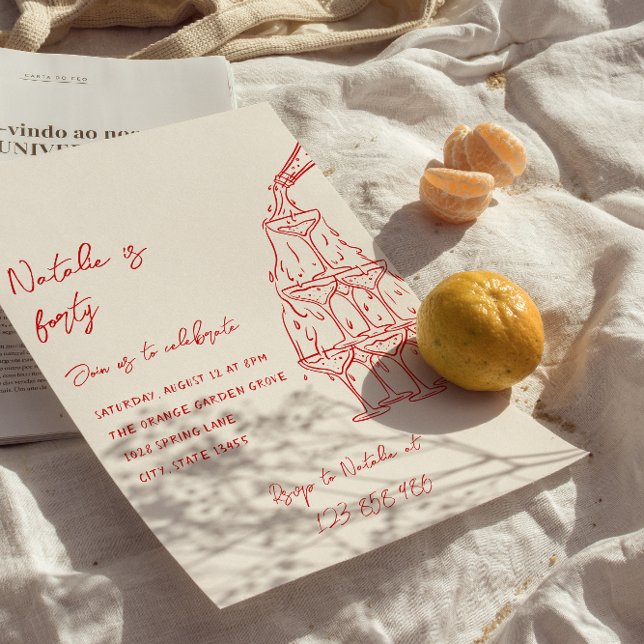 CARTA DO FEO
-vindo ao nos
UNIVER
Natalie is
forty
Join us to celebrate
SATURDAY, AUGUST 12 AT 8PM
THE ORANGE GARDEN GROVE
1028 SPRING LANE
CITY, STATE 13455
Rsvp to Natalie at
123 858 486